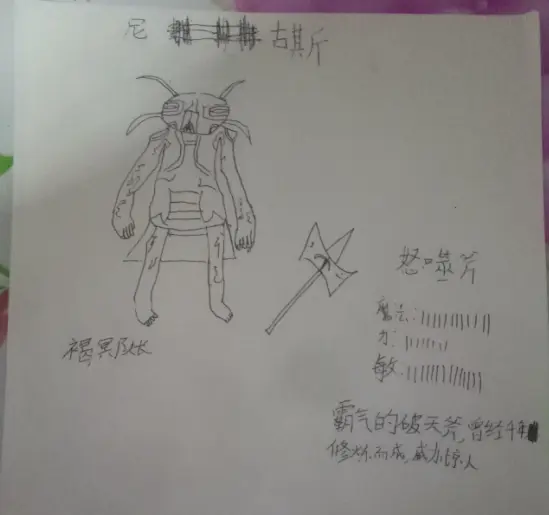 尼 古斯
怒噬斧
魔法:
力:
敏:
褐冥队长
霸气的破天斧,曾经千年
修炼而成,威力惊人